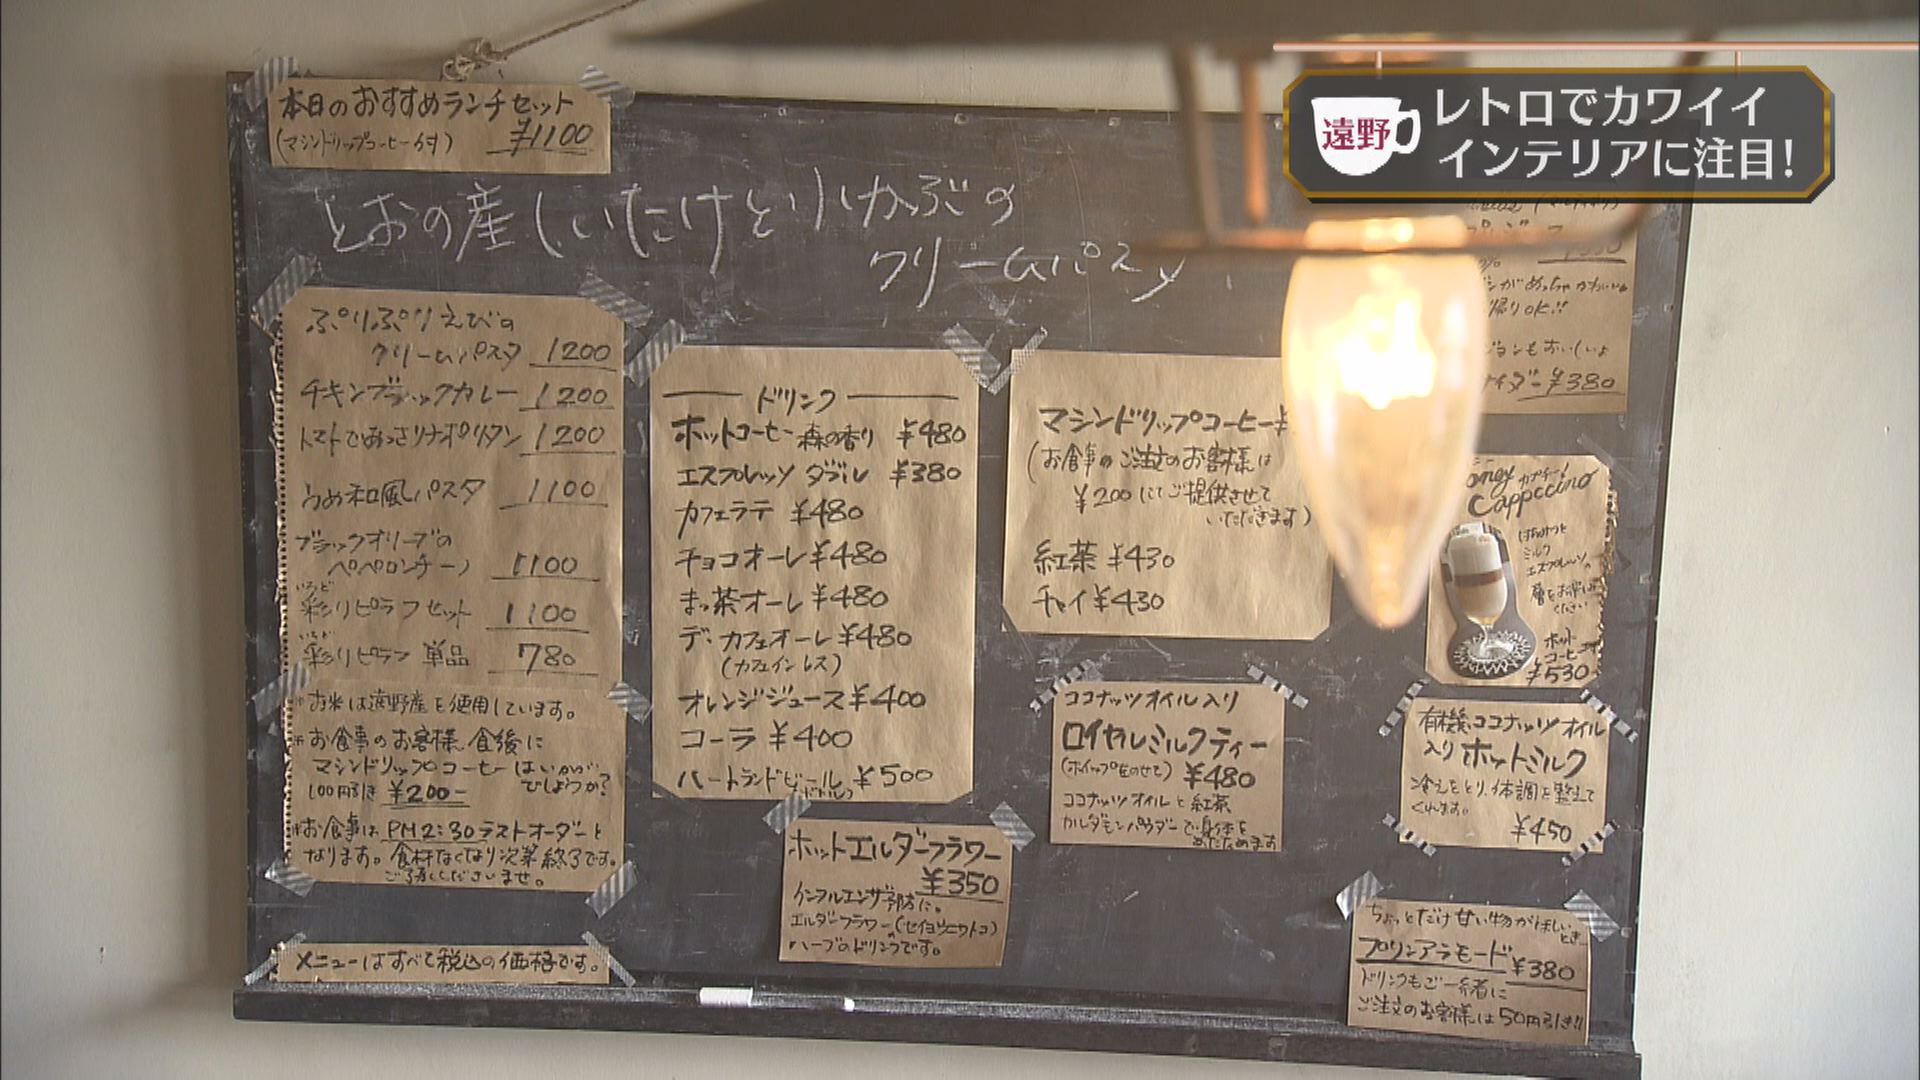 遠野
レトロでカワイイ
インテリアに注目!
本日のおすすめランチセット
(マシンドリップコーヒー付) ¥1100
とおの産しいたけと小かぶの
クリームパスタ
ぷりぷりえびの
クリームパスタ 1200
チキンブラックカレー 1200
トマトであっさりナポリタン 1200
うめ和風パスタ 1100
ブラックオリーブの
ペペロンチーノ 1100
いろど
彩りピラフセット 1100
いろど
彩りピラフ 単品 780
*お米は遠野産を使用しています。
*お食事のお客様、食後に
マシンドリップコーヒーはいかが
でしょうか?
100円引き ¥200-
*お食事は PM2:30ラストオーダーと
なります。食材なくなり次第終了です。
ご了承くださいませ。
メニューはすべて税込の価格です。
ドリンク
ホットコーヒー 森の香り ¥480
エスプレッソ ダブル ¥380
カフェラテ ¥480
チョコオーレ ¥480
まっ茶オーレ ¥480
デカフェオーレ ¥480
(カフェインレス)
オレンジジュース ¥400
コーラ ¥400
ハートランドビール ¥500
マシンドリップコーヒー
(お食事のご注文のお客様は
¥200にてご提供させて
いただきます)
紅茶 ¥430
チャイ ¥430
がめっちゃかわいい
帰りOK!!
もおいしいよ
¥380
カプチーノ
Cappccino
はちみつと
ミルク
エスプレッソの
層をお楽しみ
ください
ホット
コーヒー
¥530
ココナッツオイル入り
ロイヤルミルクティー
(ホイップをのせて) ¥480
ココナッツオイルと紅茶
カルダモンパウダーで身体を
あたためます
有機ココナッツオイル
入りホットミルク
冷えをとり、体調を整えて
くれます。
¥450
ホットエルダーフラワー
¥350
インフルエンザ予防に。
エルダーフラワー(セイヨウニワトコ)の
ハーブのドリンクです。
ちょっとだけ甘い物がほしい
とき
プリンアラモード ¥380
ドリンクもご一緒に
ご注文のお客様は50円引き!!